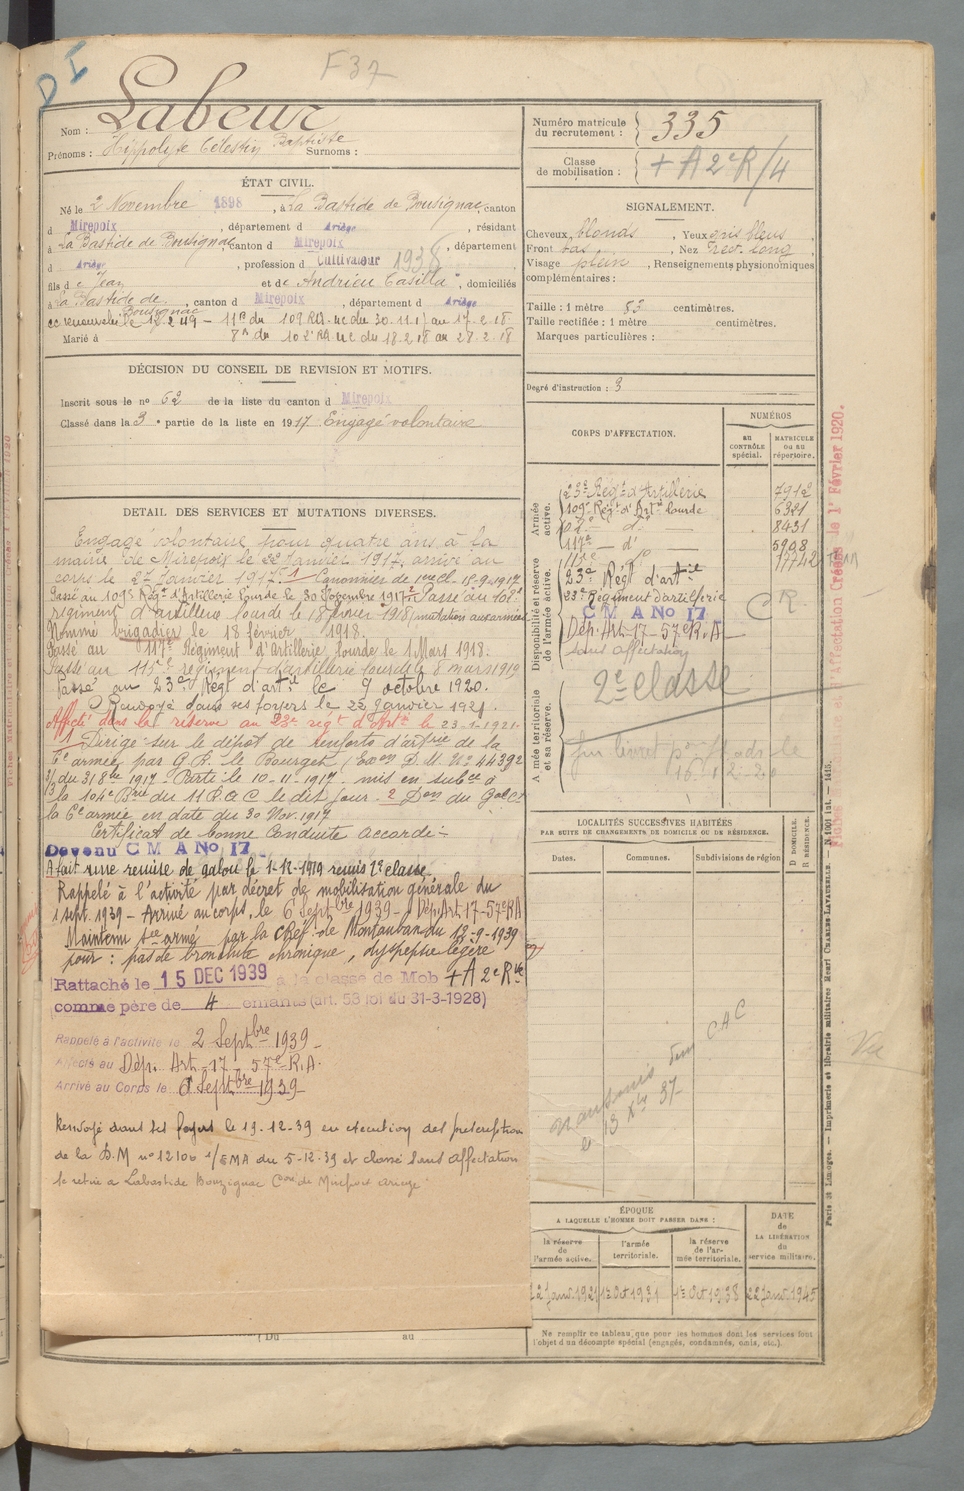 D I
F 37
Nom : Labeur
Prénoms : Hippolyte Célestin Baptiste Surnoms :
ÉTAT CIVIL.
Né le 2 Novembre 1898, à La Bastide de Bousignac, canton
d Mirepoix, département d Ariège, résidant
à La Bastide de Bousignac, canton d Mirepoix, département
d Ariège, profession de Cultivateur 1938
fils de Jean et de Andrieu Casilda, domiciliés
à La Bastide de Bousignac, canton d Mirepoix, département d Ariège
11e du 109 RA au 17-2-18
Marié à 8e du 102e RA du 18.2.18 au 28.2.18
DÉCISION DU CONSEIL DE REVISION ET MOTIFS.
Inscrit sous le no 62 de la liste du canton d Mirepoix
Classé dans la 3e partie de la liste en 1917 Engagé volontaire
DETAIL DES SERVICES ET MUTATIONS DIVERSES.
Engagé volontaire pour quatre ans à la
mairie de Mirepoix le 22 Janvier 1917, arrivé au
corps le 27 Janvier 1917. 1 Canonnier de 1ere Cl. 18-9-1917
Passé au 109e Rég. d'Artillerie Lourde le 30 Novembre 1917. 2 Passé au 102e
régiment d'artillerie lourde le 18 février 1918 (mutation aux armées)
Nommé brigadier le 18 février 1918.
Passé au 117e Régiment d'Artillerie lourde le 1 Mars 1918.
Passé au 115e régiment d'artillerie lourde le 8 mars 1919
Passé au 23e Régt d'artie le 9 octobre 1920.
Renvoyé dans ses foyers le 22 Janvier 1921.
Affecté dans la réserve au 23e regt d'Artie le 23-1-1921.
1 Dirigé sur le dépôt de renforts d'artrie de la
6e armée par G.R. le Bourget (Exon D.M. No 44392
3/3 du 31 8bre 1917. Parti le 10-11-1917. mis en subce à
la 104e Brie du 11 P.A.C le dit jour. 2 Don du Gal Ct
la 6e armée en date du 30 Nov. 1917
Certificat de bonne Conduite accordé
Devenu C M A No 17
A fait une remise de galon le 1-12-1919 remis 2e classe
Rappelé à l'activité par décret de mobilisation générale du
1 sept. 1939 – Arrivé au corps, le 6 Septbre 1939 – Dép. Art 17-57e RA
Maintenu sce armé par la CRéf. de Montauban du 12-9-1939
pour : pas de bronchite chronique, dyspepsie légère
Rattaché le 15 DEC 1939 à la classe de Mob +A 2e Rve
comme père de 4 enfants (art. 58 loi du 31-3-1928)
Rappelé à l'activité le 2 Septbre 1939
Affecté au Dép. Art. 17 – 57e R.A.
Arrivé au Corps le 6 Septbre 1939
Renvoyé dans ses foyers le 19-12-39 en exécution des prescription
de la D.M no 12100 1/EMA du 5-12-39 et classé sans affectation
se retire à Labastide Bouzignac Con de Mirepoix Ariège
( Du au
Numéro matricule du recrutement : 335
Classe de mobilisation : + A 2e R/4
SIGNALEMENT.
Cheveux blonds, Yeux gris bleus,
Front bas, Nez rect. long
Visage plein, Renseignements physionomiques
complémentaires :
Taille : 1 mètre 83 centimètres.
Taille rectifiée : 1 mètre centimètres.
Marques particulières :
Degré d'instruction : 3
CORPS D'AFFECTATION.
NUMÉROS
au CONTRÔLE spécial.
MATRICULE ou au répertoire.
Armée active.
23e Régt d'Artillerie 7912
109e Régt d'Artie lourde 6321
102e d° 8431
117e d° 5908
115e d°
Disponibilité et réserve de l'armée active.
23e Régt d'artie
23e Régiment d'artillerie
C M A No 17
C R
Dép. Art-17-57e R.A
sans affectation
Armée territoriale et sa réserve.
2e classe
LOCALITÉS SUCCESSIVES HABITÉES
PAR SUITE DE CHANGEMENTS DE DOMICILE OU DE RÉSIDENCE.
Dates.
Communes.
Subdivisions de région
D DOMICILE.
R RÉSIDENCE.
CAC
Vu
ÉPOQUE
A LAQUELLE L'HOMME DOIT PASSER DANS :
la réserve de l'armée active.
l'armée territoriale.
la réserve de l'armée territoriale.
DATE de LA LIBÉRATION du service militaire.
22 Janv. 1921
1er Oct 1931
1er Oct 1938
22 Janv. 1945
Ne remplir ce tableau que pour les hommes dont les services font
l'objet d'un décompte spécial (engagés, condamnés, omis, etc.).
Paris et Limoges. — Imprimerie et librairie militaires Henri CHARLES-LAVAUZELLE.
d'Affectation Créées le 1er Février 1920.